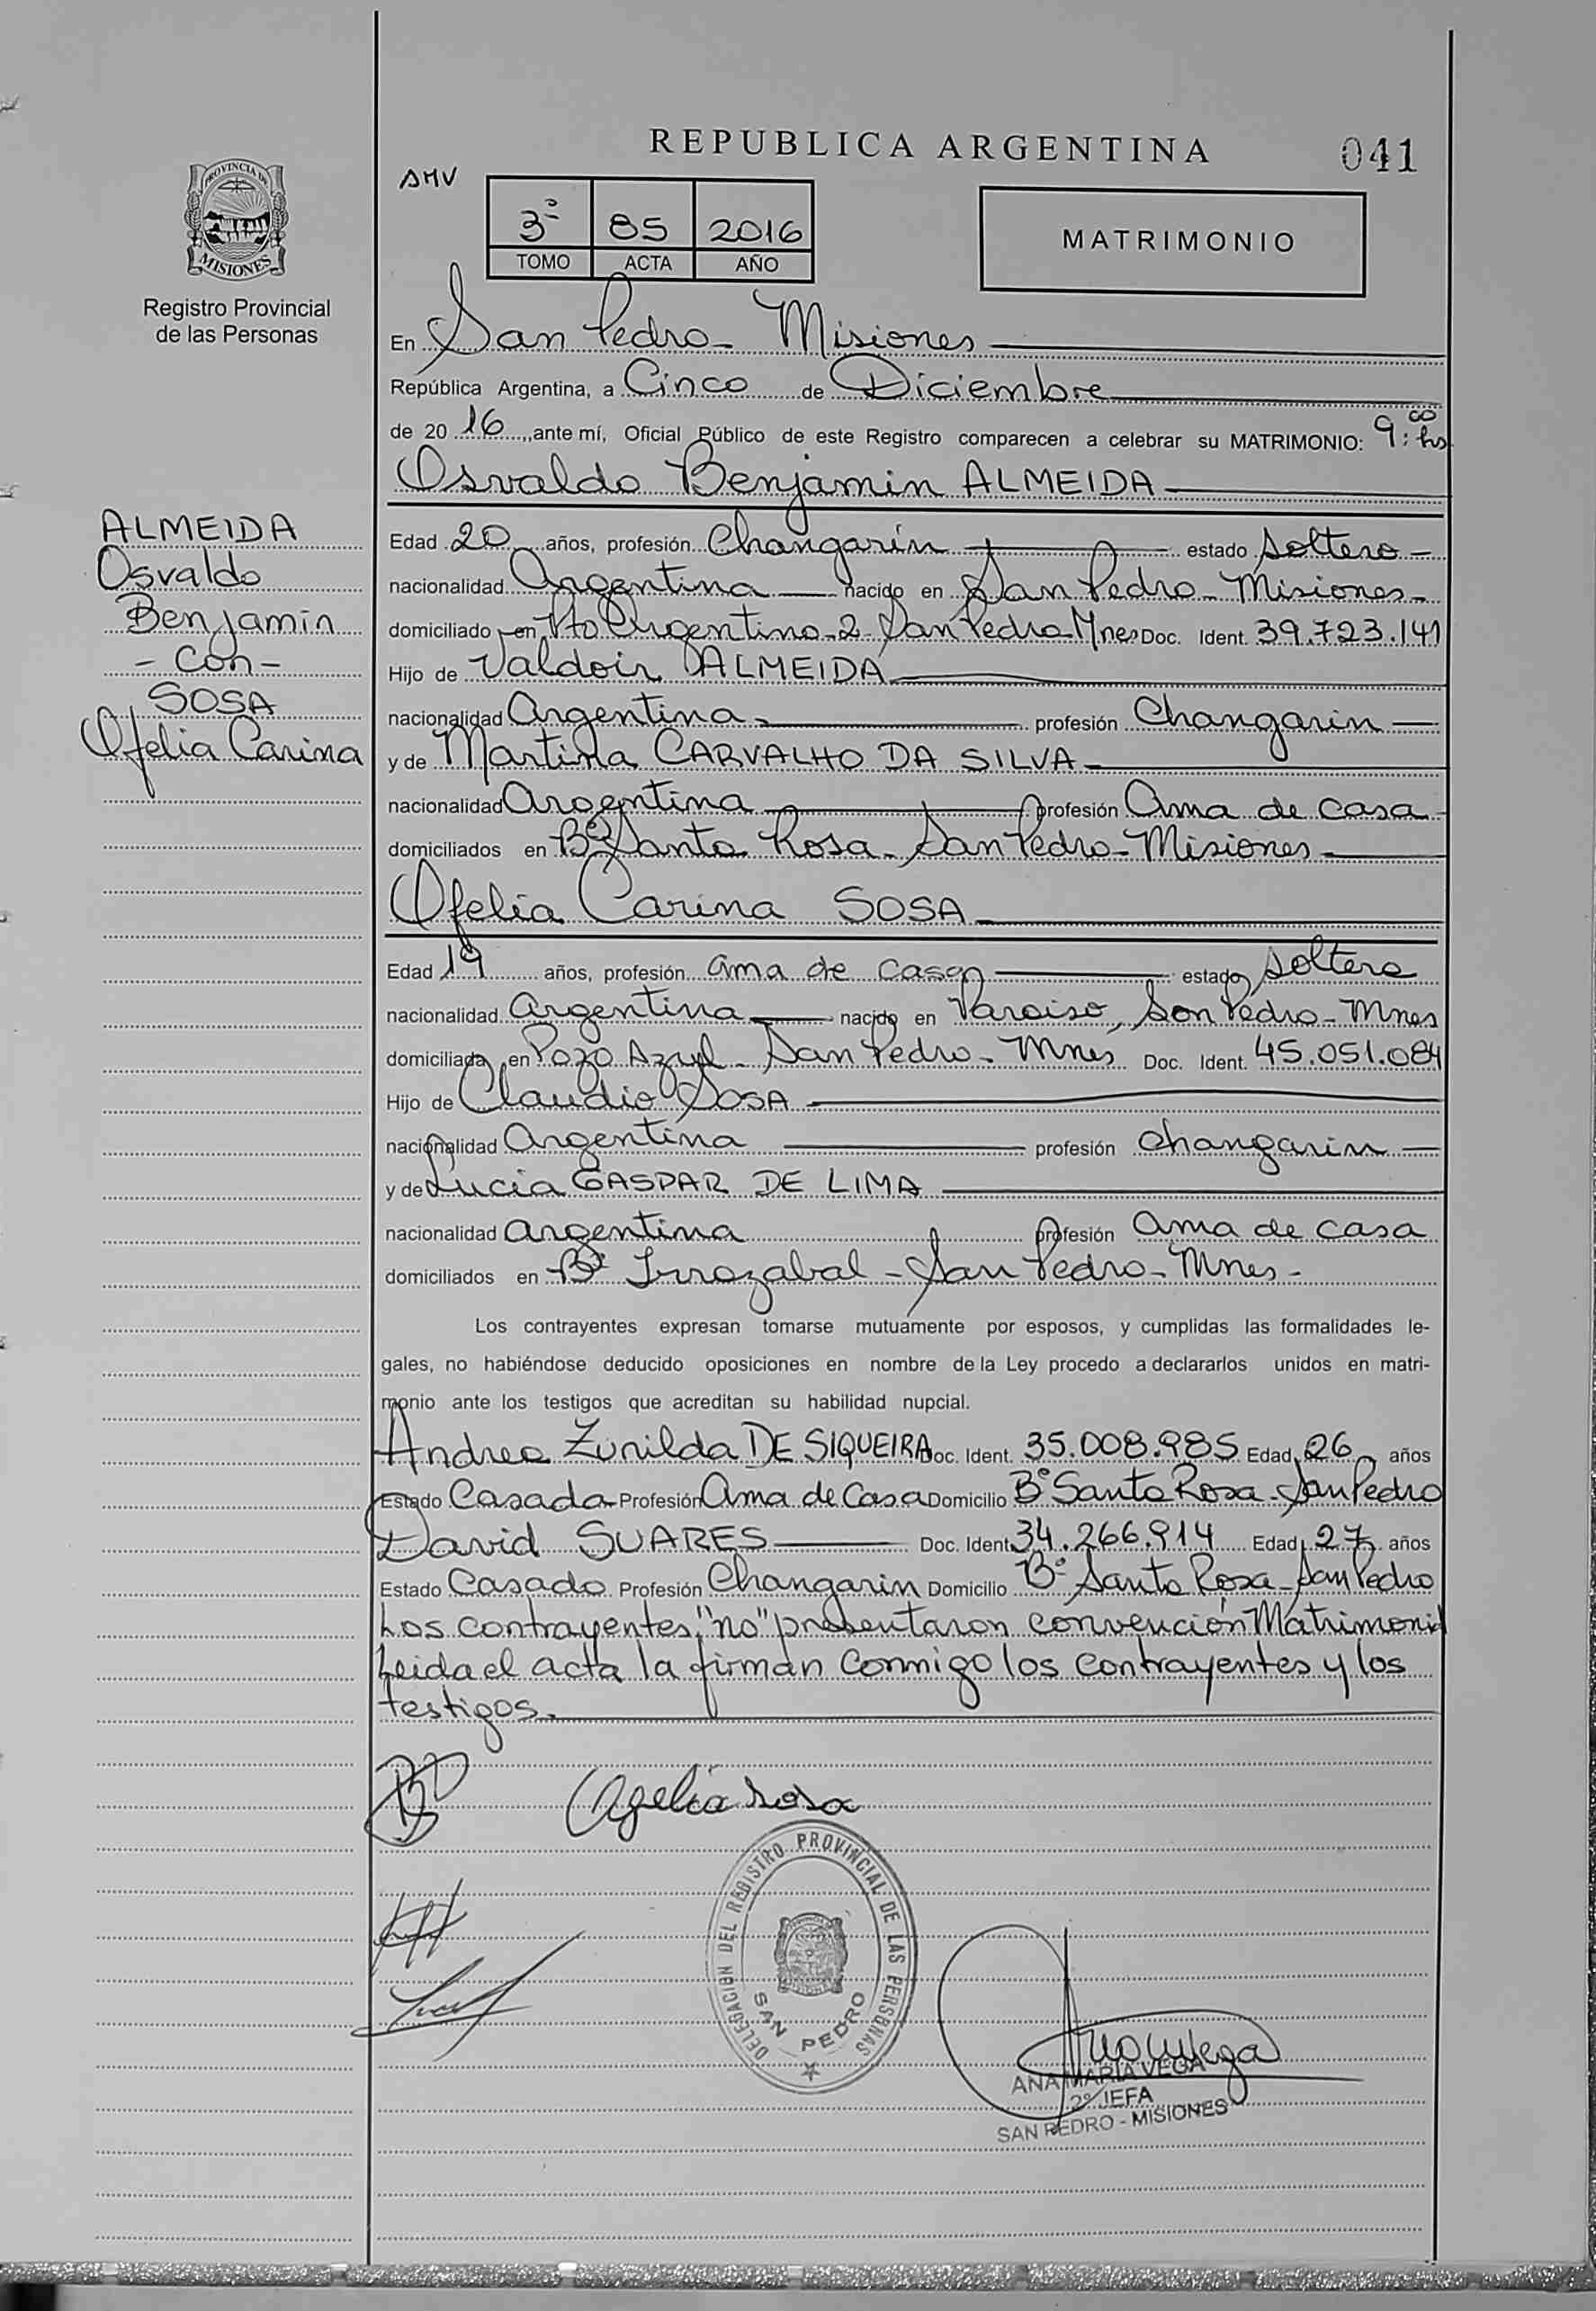 REPUBLICA ARGENTINA
041
AMV
3º 85 2016
TOMO ACTA AÑO
MATRIMONIO
PROVINCIA DE
MISIONES
Registro Provincial
de las Personas
En San Pedro - Misiones
República Argentina, a Cinco de Diciembre
de 20 16, ante mí, Oficial Público de este Registro comparecen a celebrar su MATRIMONIO: 9:00 hs
Osvaldo Benjamin ALMEIDA
ALMEIDA
Osvaldo
Benjamin
- Con -
SOSA
Ofelia Carina
Edad 20 años, profesión Changarin estado Soltero -
nacionalidad Argentina nacido en San Pedro - Misiones -
domiciliado en Pto Argentino - 2 - San Pedro - Mnes Doc. Ident. 39.723.141
Hijo de Valdoir ALMEIDA
nacionalidad Argentina - profesión Changarin -
y de Martina CARVALHO DA SILVA
nacionalidad Argentina profesión Ama de casa -
domiciliados en Bº Santa Rosa - San Pedro - Misiones
Ofelia Carina SOSA
Edad 19 años, profesión ama de casa estado Soltera
nacionalidad Argentina nacido en Paraiso, San Pedro - Mnes
domiciliada en Pozo Azul - San Pedro - Mnes Doc. Ident. 45.051.084
Hijo de Claudio SOSA
nacionalidad Argentina profesión Changarin -
y de Lucia GASPAR DE LIMA
nacionalidad Argentina profesión Ama de casa
domiciliados en Bº Irrazabal - San Pedro - Mnes -
Los contrayentes expresan tomarse mutuamente por esposos, y cumplidas las formalidades le-
gales, no habiéndose deducido oposiciones en nombre de la Ley procedo a declararlos unidos en matri-
monio ante los testigos que acreditan su habilidad nupcial.
Andrea Zunilda DE SIQUEIRA Doc. Ident. 35.008.985 Edad 26 años
Estado Casada Profesión Ama de Casa Domicilio Bº Santa Rosa - San Pedro
David SUARES Doc. Ident. 34.266.914 Edad 27 años
Estado Casado Profesión Changarin Domicilio Bº Santa Rosa - San Pedro
Los contrayentes "no" presentaron convención Matrimonial
Leida el acta la firman conmigo los contrayentes y los
testigos.
Ofelia Sosa
DELEGACION DEL REGISTRO PROVINCIAL DE LAS PERSONAS
SAN PEDRO
ANA MARIA VEGA
2º JEFA
SAN PEDRO - MISIONES